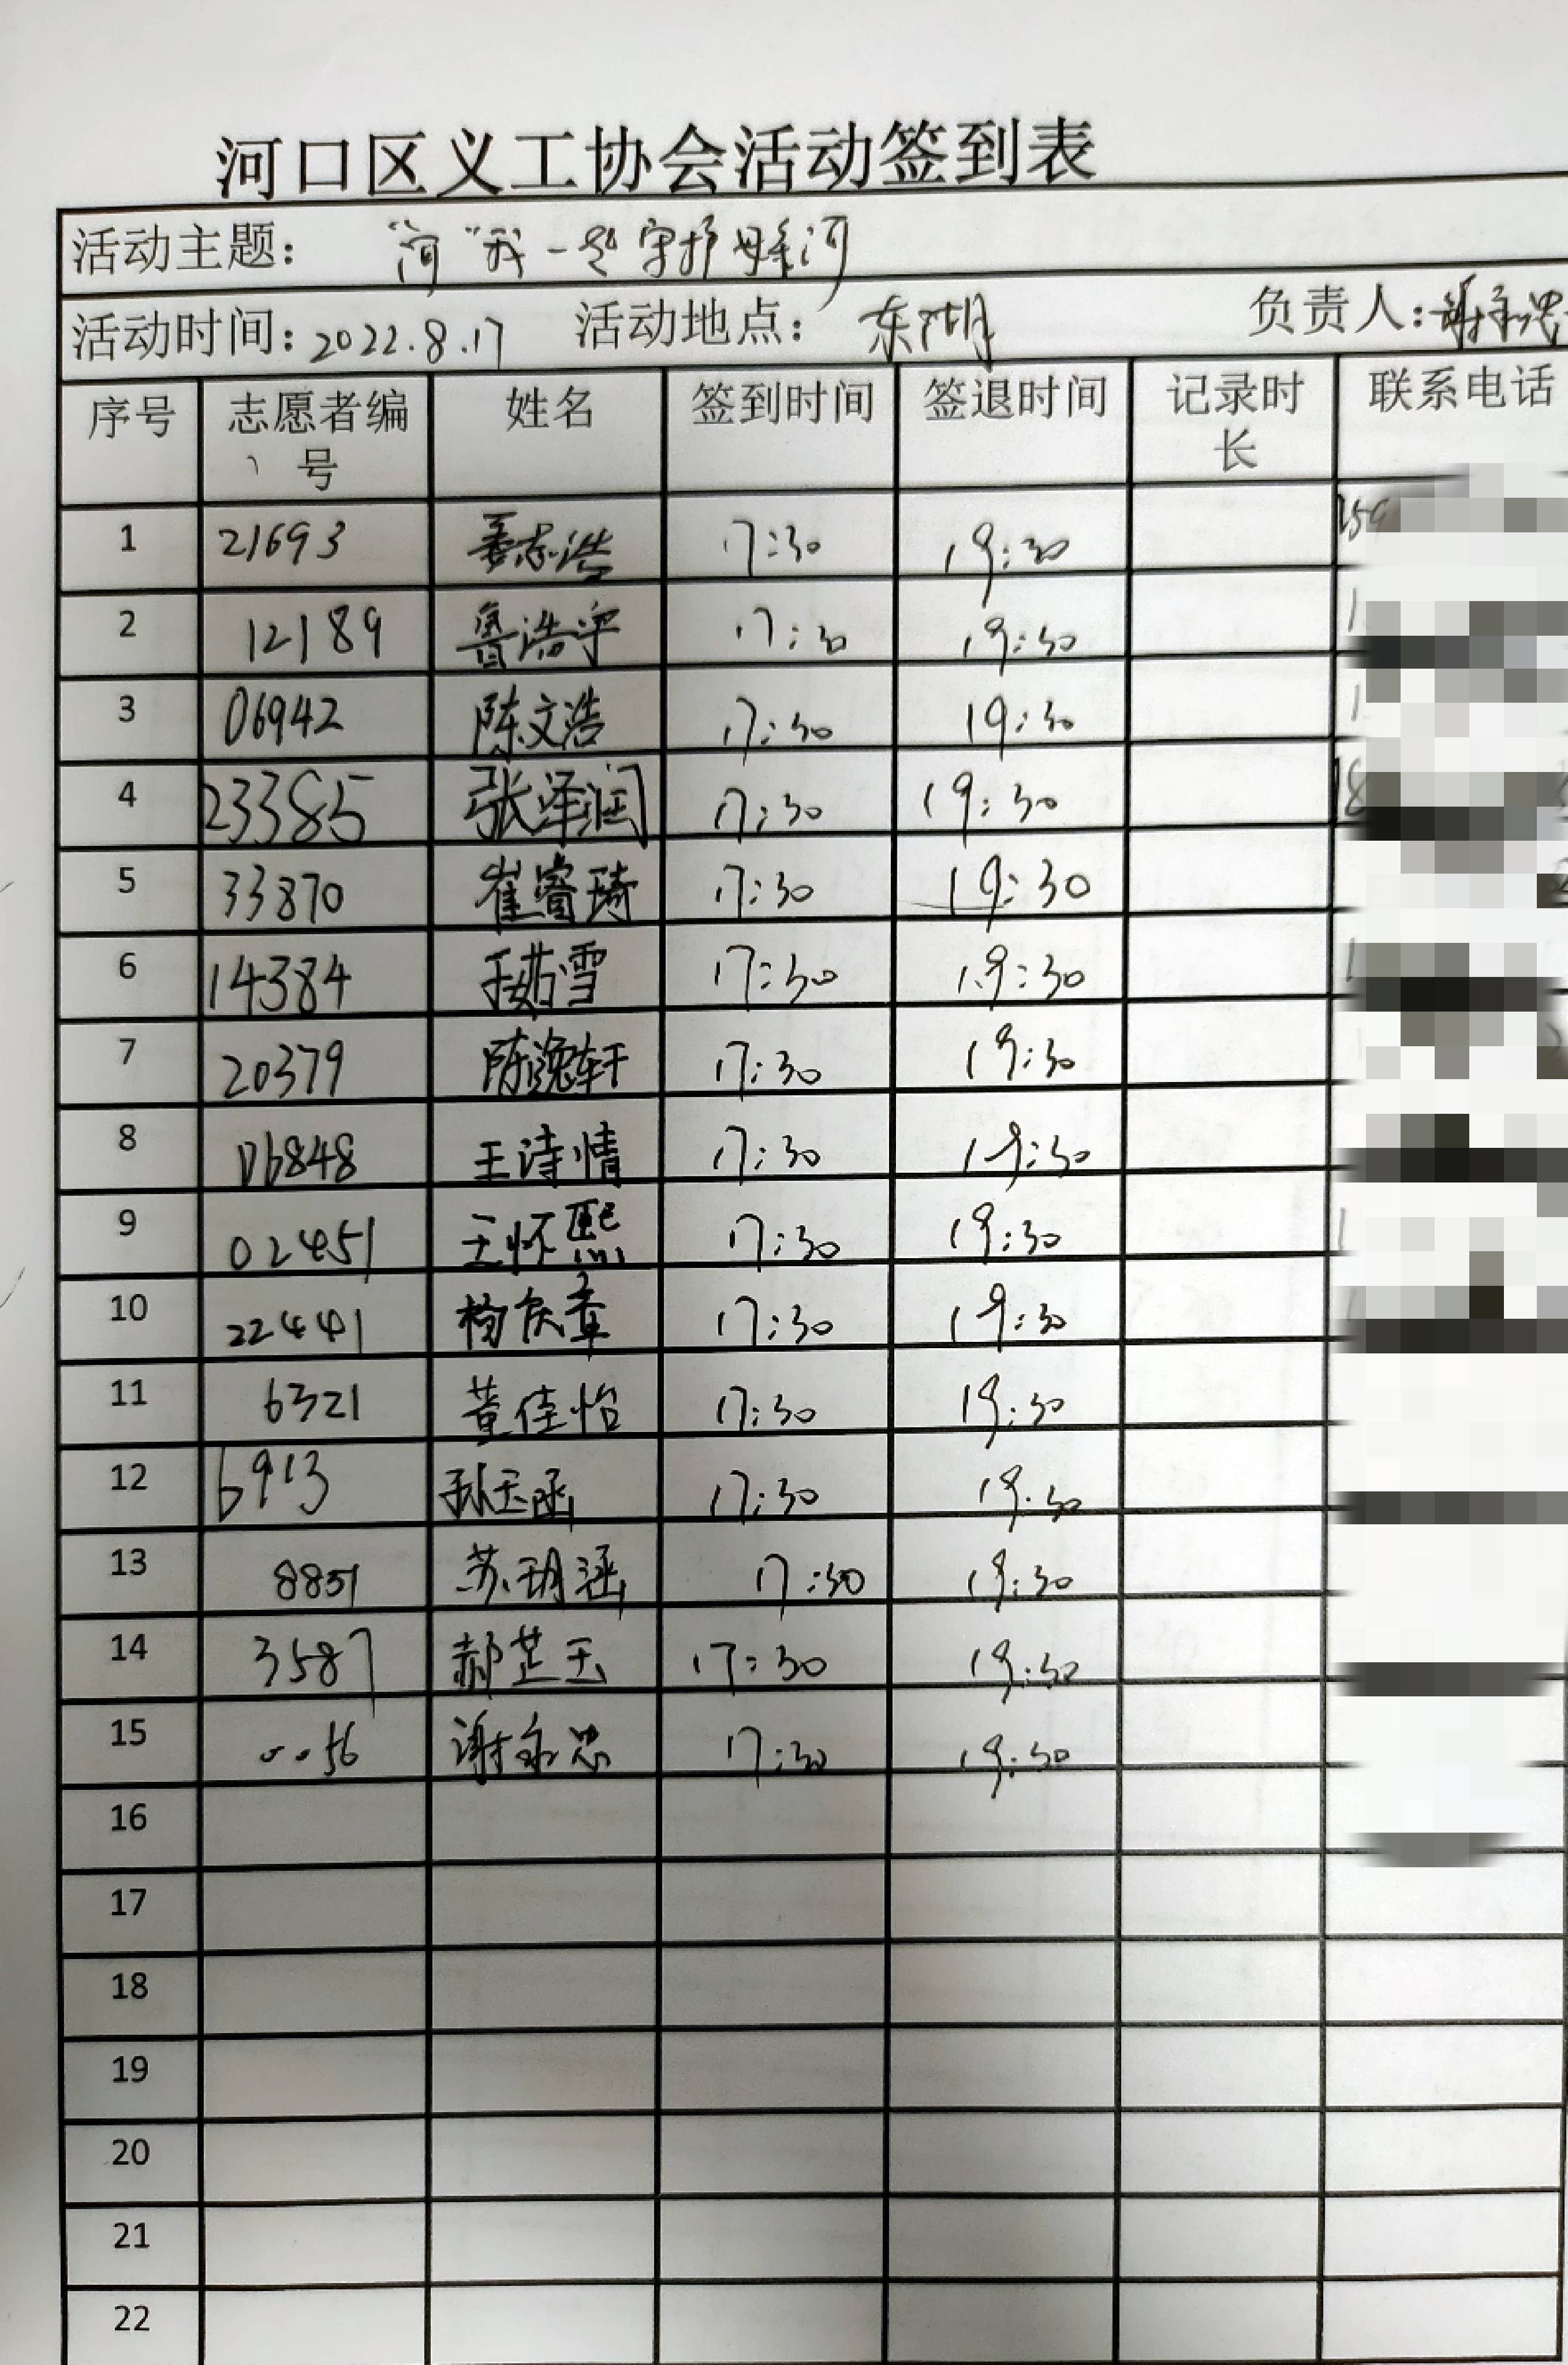 河口区义工协会活动签到表
活动主题: "河"我一起守护母亲河
活动时间: 2022.8.17 活动地点: 东湖 负责人: 谢永忠
序号 志愿者编号 姓名 签到时间 签退时间 记录时长 联系电话
1 21693 志浩 17:30 19:30
2 12189 鲁浩宇 17:30 19:30
3 06942 陈文浩 17:30 19:30
4 23385 张泽润 17:30 19:30
5 33870 崔睿琦 17:30 19:30
6 14384 于茹雪 17:30 19:30
7 20379 陈逸轩 17:30 19:30
8 06848 王诗情 17:30 19:30
9 02451 王怀熙 17:30 19:30
10 22441 杨庆章 17:30 19:30
11 6321 董佳怡 17:30 19:30
12 6913 孙玉函 17:30 19:30
13 8851 苏玥涵 17:30 19:30
14 3587 郝芷玉 17:30 19:30
15 0056 谢永忠 17:30 19:30
16
17
18
19
20
21
22